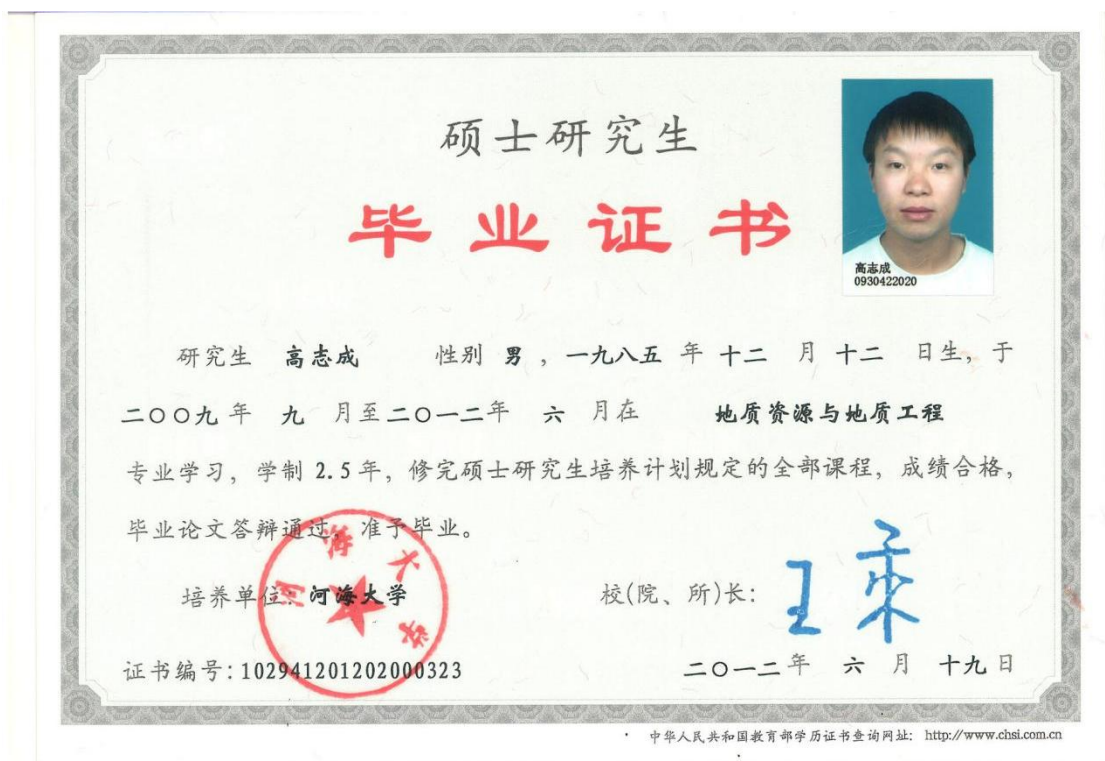 硕士研究生
毕业证书
高志成
0930422020
研究生 高志成 性别 男 ，一九八五 年 十二 月 十二 日生，于
二〇〇九 年 九 月至 二〇一二 年 六 月在 地质资源与地质工程
专业学习，学制 2.5 年，修完硕士研究生培养计划规定的全部课程，成绩合格，
毕业论文答辩通过，准予毕业。
河海大学
培养单位：河海大学
校(院、所)长：王乘
证书编号：102941201202000323
二〇一二 年 六 月 十九 日
中华人民共和国教育部学历证书查询网址： http://www.chsi.com.cn